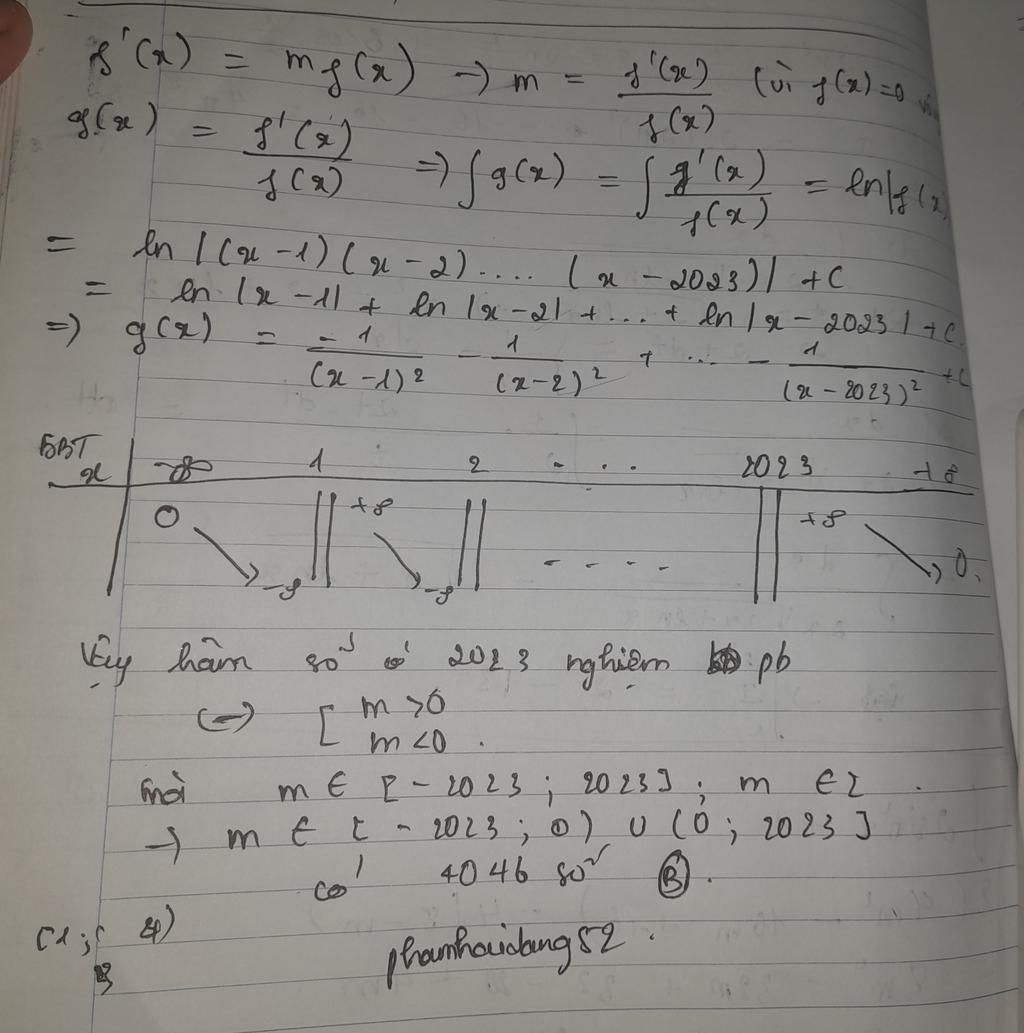 f'(x) = m f(x) → m = f'(x)/f(x) (vì f(x)=0
g(x) = f'(x)/f(x) ⇒ ∫g(x) = ∫ g'(x)/f(x) = ln|f(x)
= ln |(x-1)(x-2)....(x-2023)| + C
= ln |x-1| + ln |x-2| + ... + ln |x-2023| + C
⇒ g(x) = -1/(x-1)² - 1/(x-2)² + ... - 1/(x-2023)² + C
BBT
x -∞ 1 2 - ... 2023 +∞
0 || +∞ || || +∞
-∞ -∞ - - - - 0.
Vậy hàm số có 2023 nghiệm pb
⇔ [ m > 0
m < 0 .
mà m ∈ [-2023 ; 2023] ; m ∈ Z .
→ m ∈ [-2023 ; 0) ∪ (0 ; 2023]
có 4046 số (B) .
phamhaidang52 .